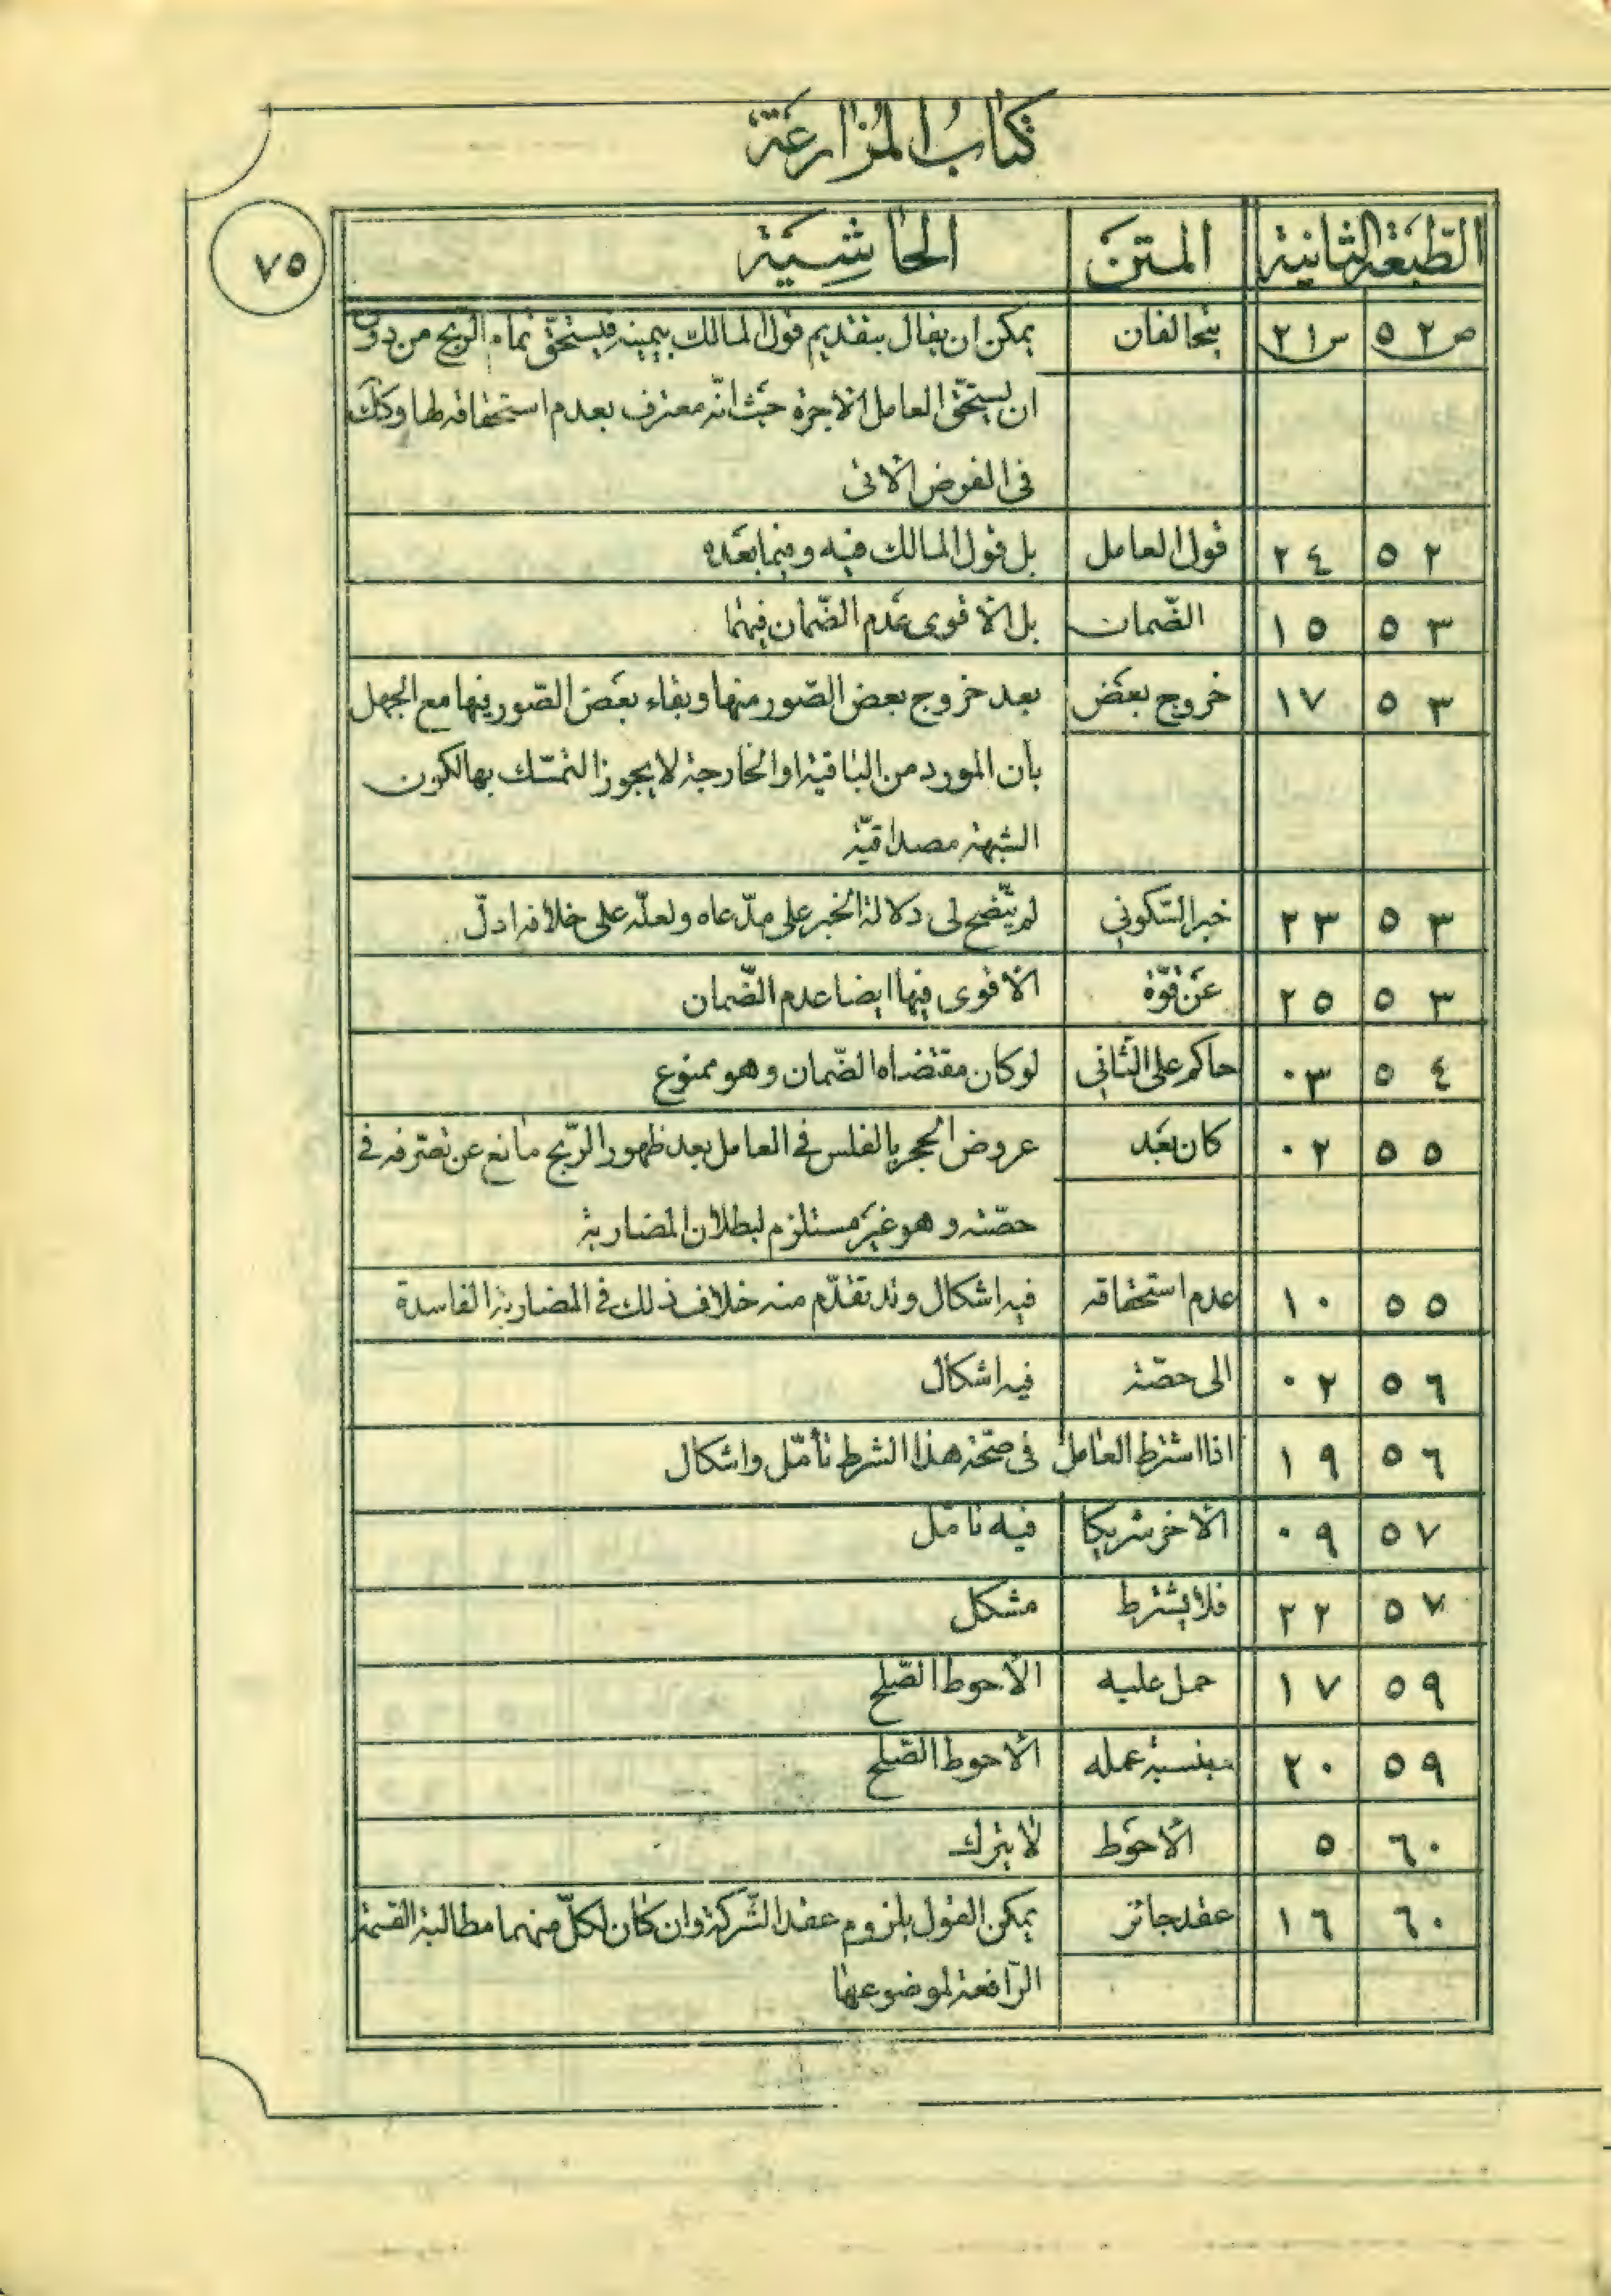 كتاب المزارعة
٧٥
الطّبعة الثانية المتن الحاشية
ص ٥٢ س ٢١ يتحالفان يمكن ان يقال بتقديم قول المالك بيمينه فيستحقّ تمام الرّبح من دون
ان يستحقّ العامل الأجرة حيث انّه معترف بعدم استحقاقه لها وكذلك
فى الفرض الاتى
٥٢ ٢٤ قول العامل بل قول المالك فيه وفيما بعده
٥٣ ١٥ الضّمان بل الأقوى عدم الضّمان فيهما
٥٣ ١٧ خروج بعض بعد خروج بعض الصّور منها وبقاء بعض الصّور فيها مع الجهل
بأن المورد من الباقية او الخارجة لا يجوز التمسّك بها لكون
الشبهة مصداقيّة
٥٣ ٢٣ خبر السّكوني لم يتّضح لى دلالة الخبر على مدّعاه ولعلّه على خلافه ادلّ
٥٣ ٢٥ عن قوّة الأقوى فيها ايضا عدم الضّمان
٥٤ ٠٣ حاكم على الثّاني لو كان مقتضاه الضّمان وهو ممنوع
٥٥ ٠٢ كان بعد عروض الحجر بالفلس في العامل بعد ظهور الرّبح مانع عن تصرّفه في
حصّته وهو غير مستلزم لبطلان المضاربة
٥٥ ١٠ عدم استحقاقه فيه اشكال وقد تقدّم منه خلاف ذلك في المضاربة الفاسدة
٥٦ ٠٢ الى حصّة فيه اشكال
٥٦ ١٩ اذا اشترط العامل فى صحّة هذا الشرط تأمّل واشكال
٥٧ ٠٩ الأخر شريكا فيه تأمّل
٥٧ ٢٢ فلا يشترط مشكل
٥٩ ١٧ حمل عليه الأحوط الصّلح
٥٩ ٢٠ بنسبة عمله الأحوط الصّلح
٦٠ ٥ الأحوط لا يترك
٦٠ ١٦ عقد جائز يمكن القول بلزوم عقد الشّركة وان كان لكلّ منهما مطالبة القسمة
الرّافعة لموضوعها